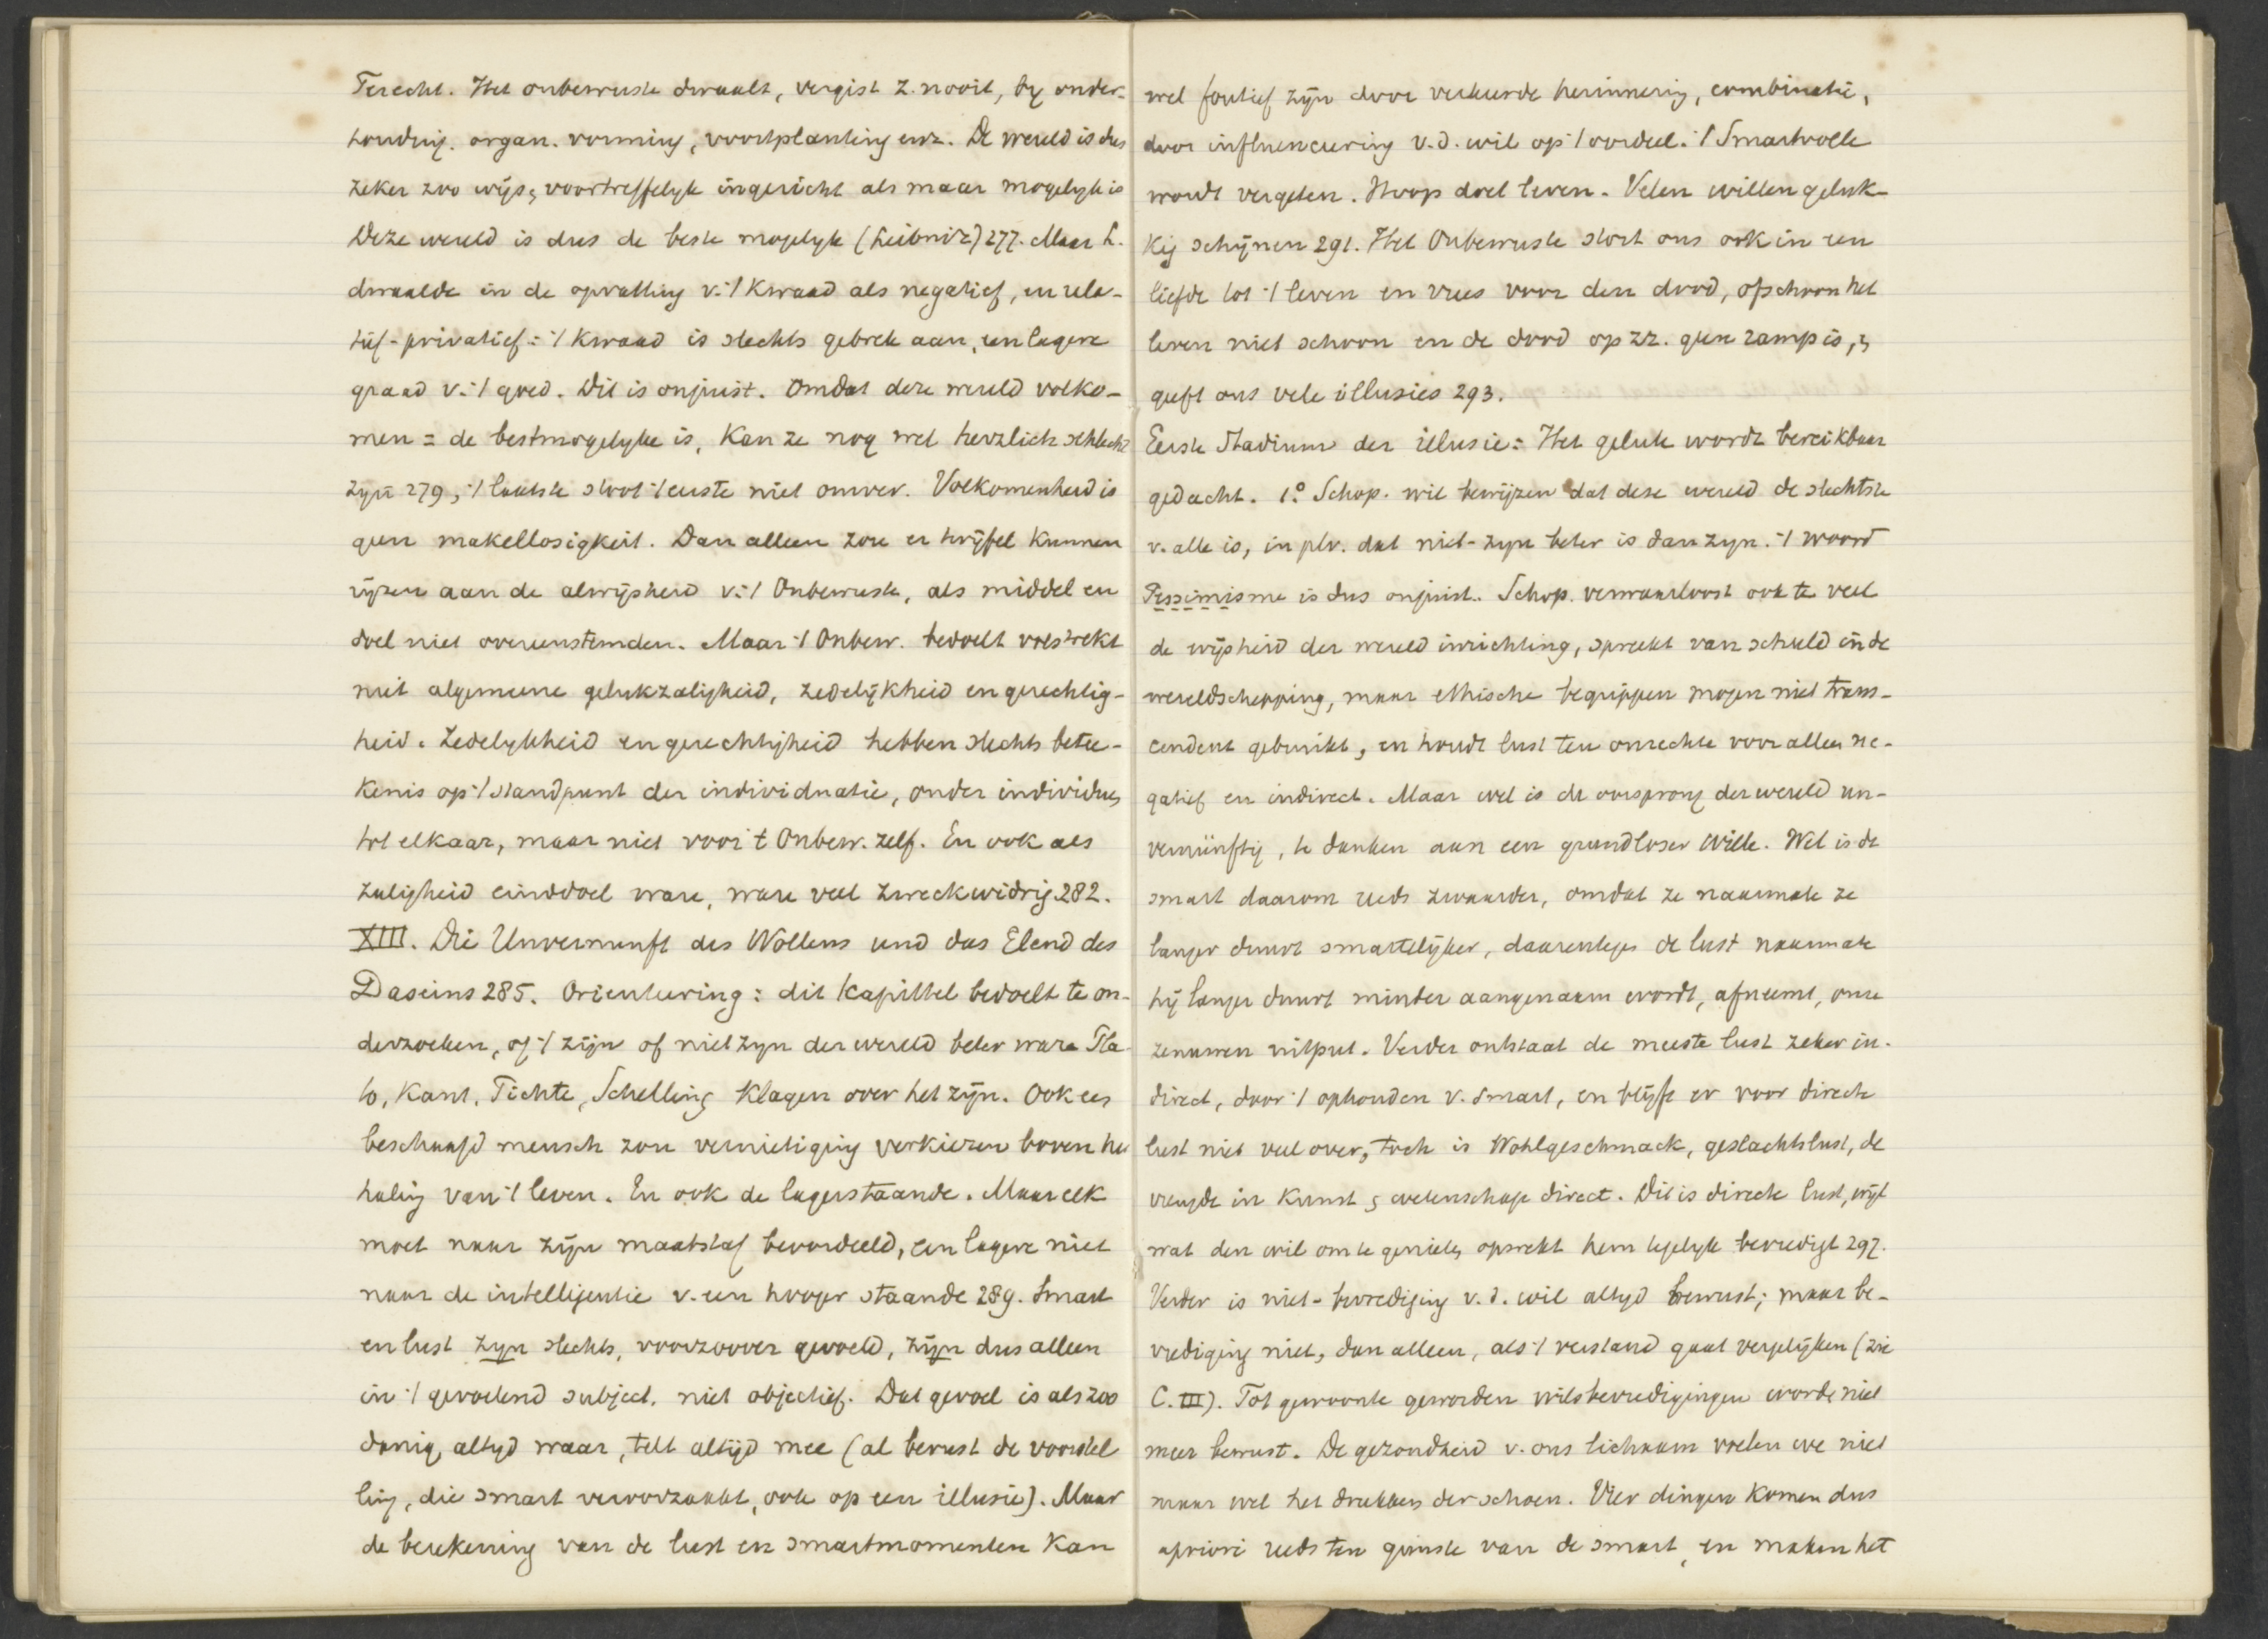 Terecht. Het onbewuste dwaalt, vergist z. nooit, by onder-
houding. organ. vorming, voortplanting enz. De wereld is dus
zeker zoo wijs & voortreffelyk ingericht als maar mogelyk is
Deze wereld is dus de beste mogelyke (Leibniz) 277. Maar L.
dwaalde in de opvatting v. 't kwaad als negatief, en rela-
tief-privatief: 't kwaad is slechts gebrek aan, een lagere
graad v. 't goed. Dit is onjuist. Omdat deze wereld volko-
men = de bestmogelyke is, kan ze nog wel herzlich schlecht
zyn 279, 't laatste sluit 't eerste niet omver. Volkomenheid is
geen makellosigkeit. Dan alleen zou er twijfel kunnen
rijzen aan de alwijsheid v. 't Onbewuste, als middel en
doel niet overeenstemden. Maar 't Onbew. bedoelt volstrekt
niet algemeene gelukzaligheid, zedelijkheid en gerechtig-
heid. Zedelykheid en gerechtigheid hebben slechts betee-
kenis op 't standpunt der individuatie, onder individues
tot elkaar, maar niet voor 't Onbew. zelf. En ook als
zaligheid einddoel ware, ware veel zweckwidrig 282.
XIII. Die Unvernunft des Wollens und das Elend des
Daseins 285. Orienteering: dit kapittel bedoelt te on-
derzoeken, of 't zijn of niet zyn der wereld beter ware Pla-
to, Kant, Fichte, Schelling klagen over het zijn. Ook een
beschaafd mensch zou vernietiging verkiezen boven her
haling van 't leven. En ook de lagerstaande. Maar elk
moet naar zijn maatstaf beoordeeld, een lagere niet
naar de intelligentie v. een hooger staande 289. Smart
en lust zyn slechts, voorzoover gevoeld, zijn dus alleen
in 't gevoelend subject, niet objectief. Dat gevoel is als zoo
danig altyd waar, telt altijd mee (al berust de voorstel
ling, die smart veroorzaakt, ook op een illusie). Maar
de berekening van de lust en smartmomenten kan
wel foutief zijn door verkeerde herinnering, combinatie,
door influenceering v.d. wil op 't oordeel. 't Smartvolle
wordt vergeten. Hoop doet leven. Velen willen geluk-
kig schijnen 291. Het Onbewuste stort ons ook in een
liefde tot 't leven en vrees voor den dood, ofschoon het
leven niet schoon en de dood op zz. geen ramp is, &
geeft ons vele illusies 293.
Eerste Stadium der illusie: Het geluk wordt bereikbaar
gedacht. 1.º Schop. wil bewijzen dat deze wereld de slechtste
v. alle is, in plv. dat niet-zyn beter is dan zyn. 't woord
Pessimisme is dus onjuist. Schop. verwaarloost ook te veel
de wijsheid der wereld inrichting, spreekt van schuld in de
wereldschepping, maar ethische begrippen mogen niet trans-
cendent gebruikt, en houdt lust ten onrechte voor alleen ne-
gatief en indirect. Maar wel is de oorsprong der wereld un-
vernünftig, te danken aan een grundloser Wille. Wel is de
smart daarom reeds zwaarder, omdat ze naarmate ze
langer duurt smartelijker, daarentegen de lust naarmate
hij langer duurt minder aangenaam wordt, afneemt, onze
zenuwen uitput. Verder ontstaat de meeste lust zeker in-
direct, door 't ophouden v. smart, en blijft er voor directe
lust niet veel over, toch is Wohlgeschmack, geslachtslust, de
vreugde in kunst & wetenschap direct. Dit is directe lust, wijl
wat den wil om te genieten opwekt hem tegelyk bevredigt 297.
Verder is niet-bevrediging v.d. wil altyd bewust; maar be-
vrediging niet, dan alleen, als 't verstand gaat vergelijken (zie
C. III). Tot gewoonte geworden wilsbevredigingen worden niet
meer bewust. De gezondheid v. ons lichaam voelen we niet
maar wel het drukken der schoen. Vier dingen komen dus
apriori reeds ten gunste van de smart, en maken het